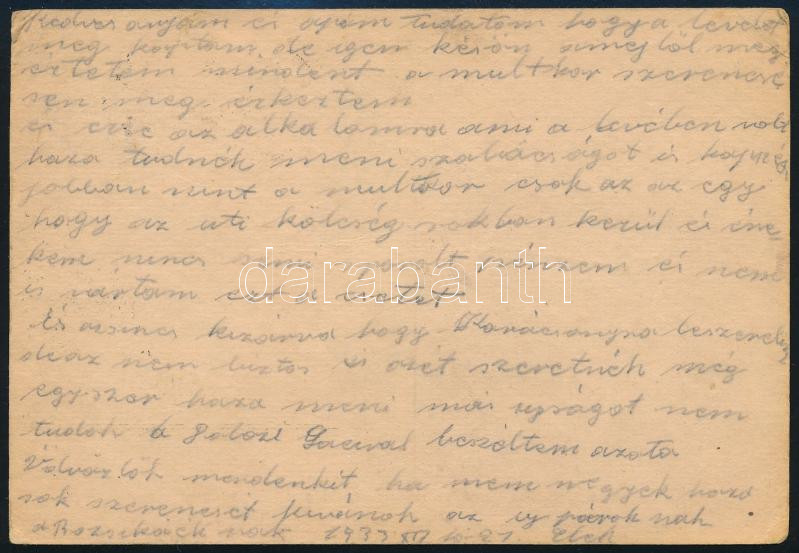 Kedves anyám és apám tudatom hogy a levelet
meg kaptam de igen későn
meg
értetem mindent a multkor szerencsé
sen meg érkeztem
és erre az alkalomra ami a levében volt
haza tudnék meni szabácságot is kapnék
jobban mint a multkor csak az az egy
hogy az uti kölcség sokban kerül és éne-
kem nincs semi spórolt pénzem és nem
is vártam ezt a esetet
És nincs kizárva hogy Karácsonyra leszerelek
de az nem biztos és azét szeretnék még
egyszer haza meni más ujságot nem
tudok a Gacival beszéltem azota
Üdvözlök mendenkit ha nem megyek haza
sok szerencsét kivánok az uj párok nak
a Rozsikáék nak 1933 XII hó 21 Elek
darabanth